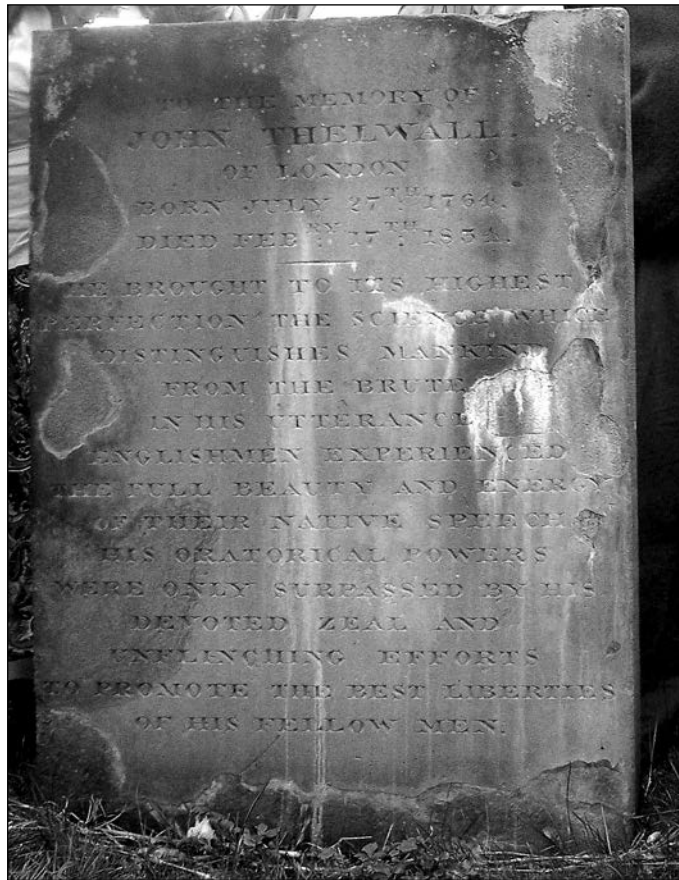 TO THE MEMORY OF
JOHN THELWALL.
OF LONDON
BORN JULY 27TH. 1764.
DIED FEBRY. 17TH. 1834.
HE BROUGHT TO ITS HIGHEST
PERFECTION THE SCIENCE WHICH
DISTINGUISHES MANKIND
FROM THE BRUTE
IN HIS UTTERANCE
ENGLISHMEN EXPERIENCED
THE FULL BEAUTY AND ENERGY
OF THEIR NATIVE SPEECH
HIS ORATORICAL POWERS
WERE ONLY SURPASSED BY HIS
DEVOTED ZEAL AND
UNFLINCHING EFFORTS
TO PROMOTE THE BEST LIBERTIES
OF HIS FELLOW MEN.